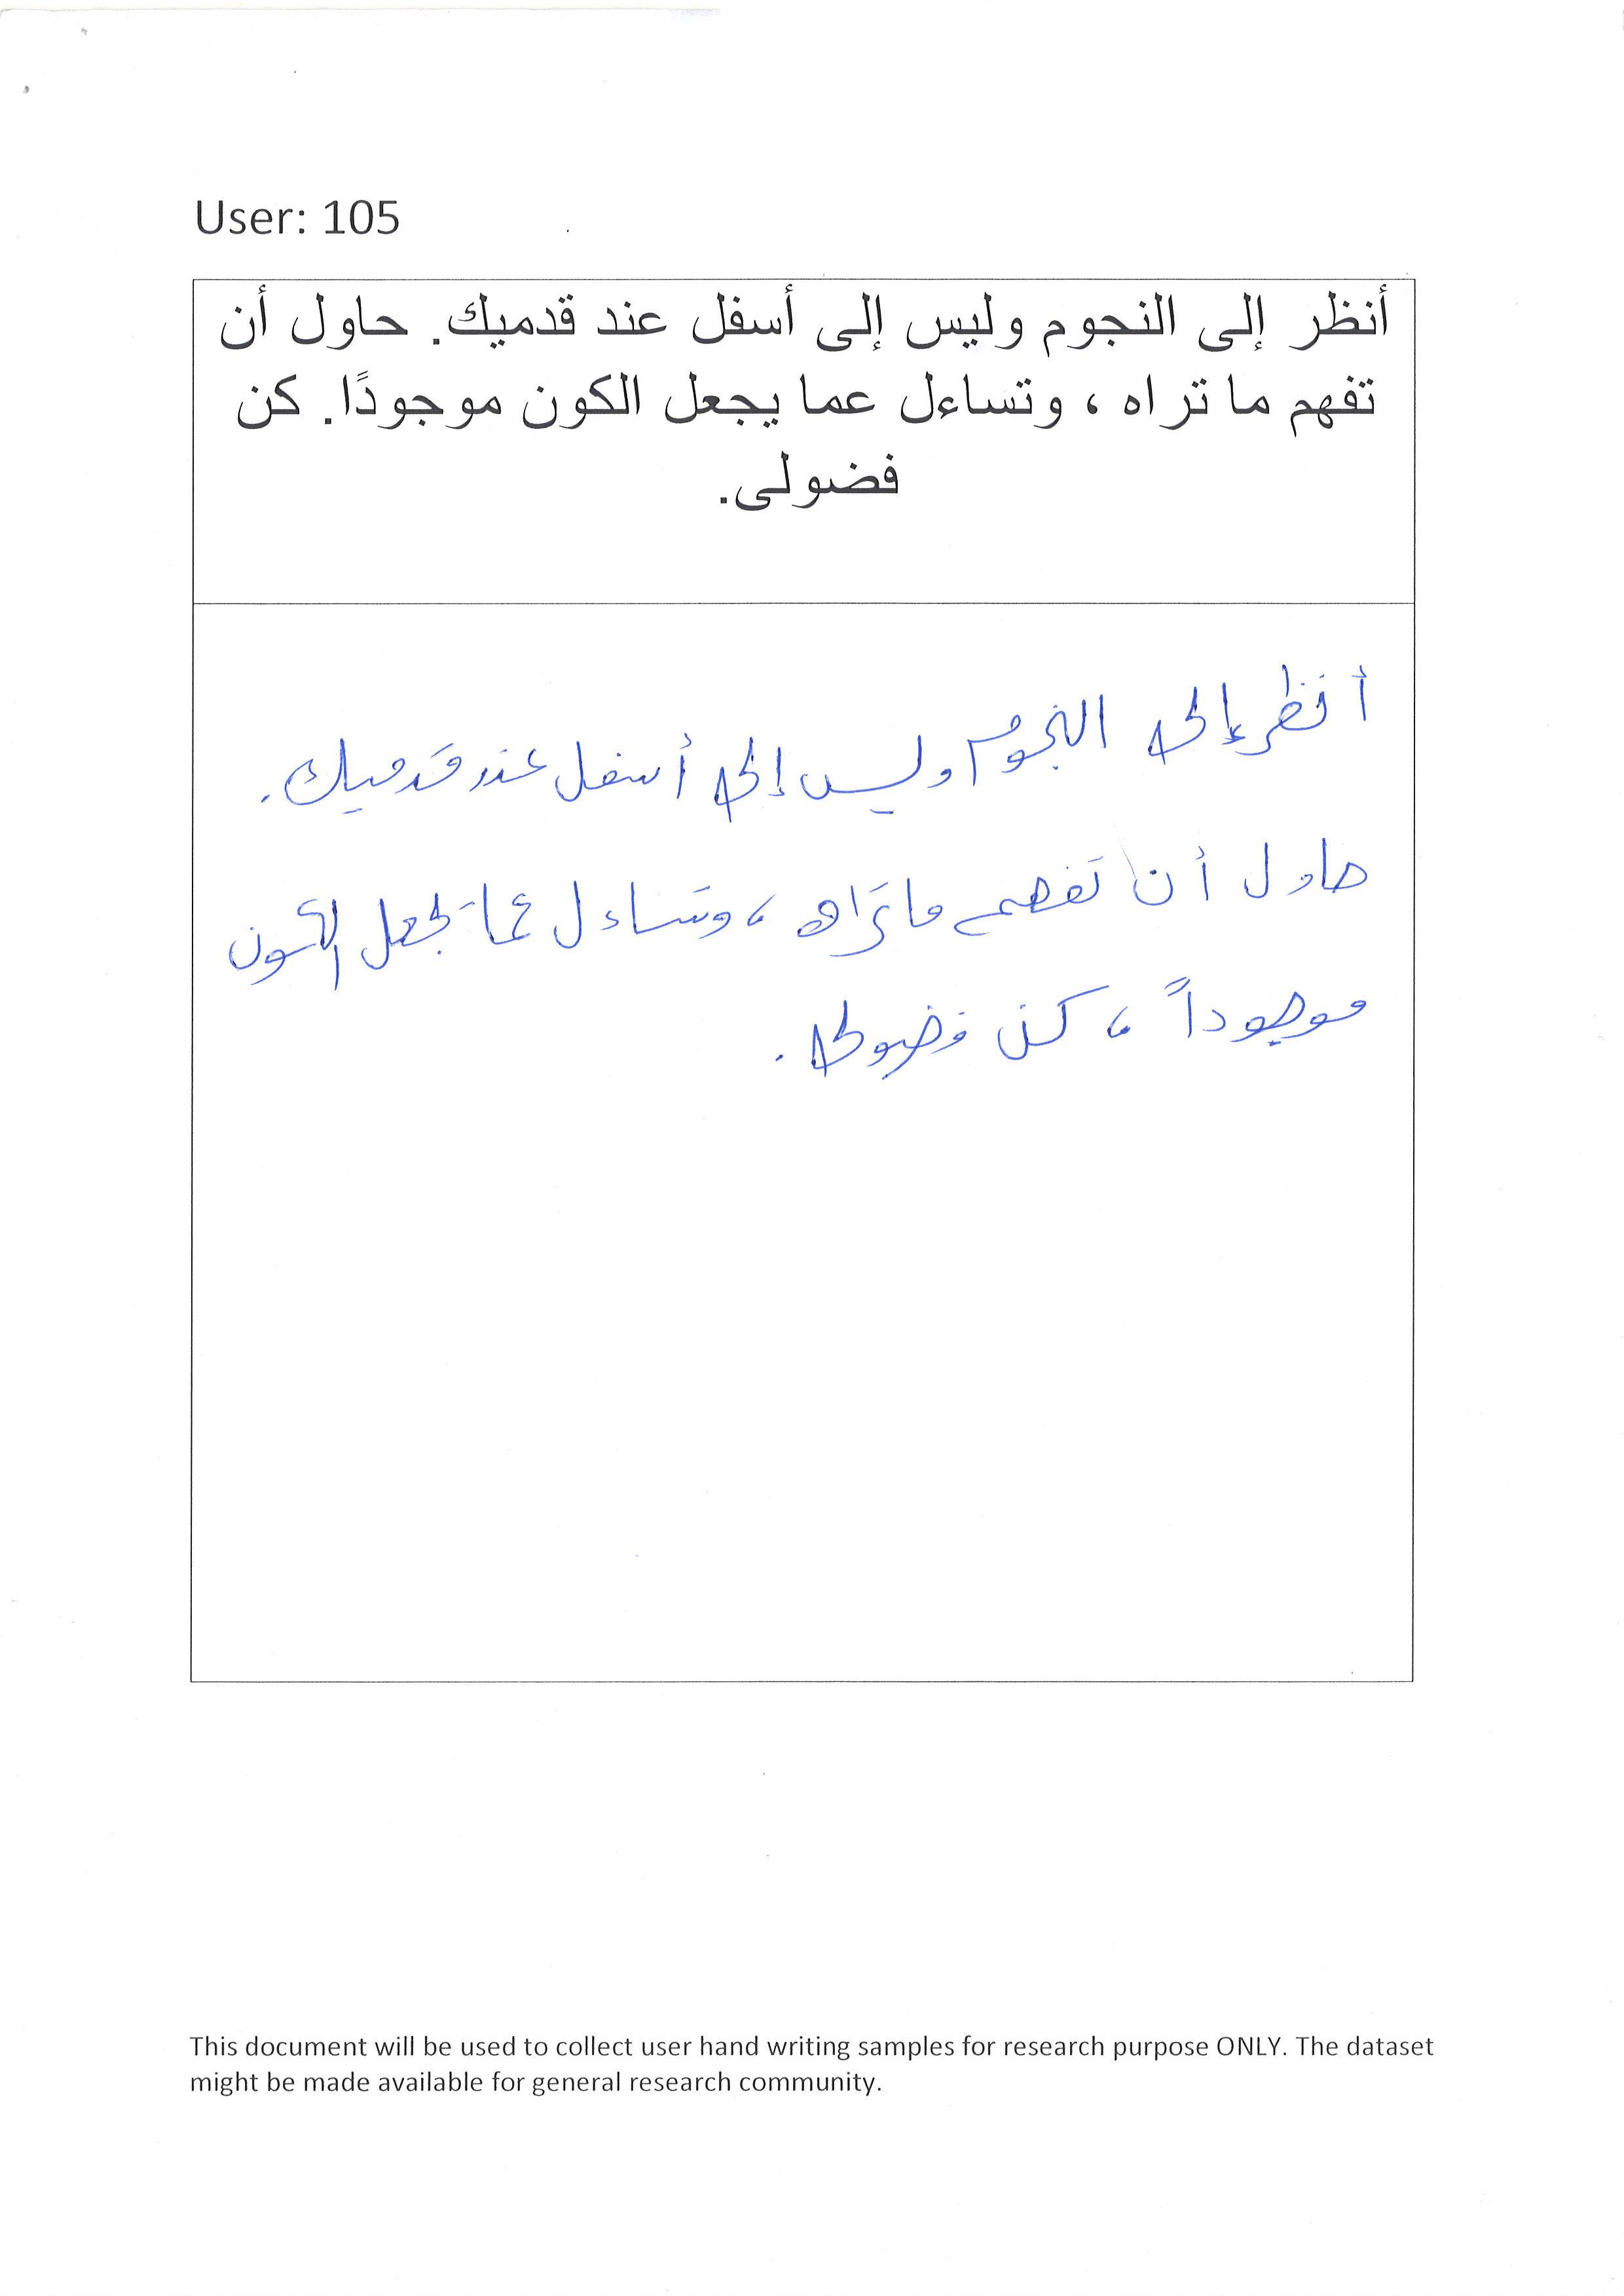 User: 105
أنظر إلى النجوم وليس إلى أسفل عند قدميك. حاول أن
تفهم ما تراه ، وتساءل عما يجعل الكون موجودًا. كن
فضولى.
أنظر إلى النجوم وليس إلى أسفل عند قدميك.
حاول أن تفهم ما تراه ، وتساءل عما يجعل الكون
موجوداً ، كن فضولى .
This document will be used to collect user hand writing samples for research purpose ONLY. The dataset
might be made available for general research community.